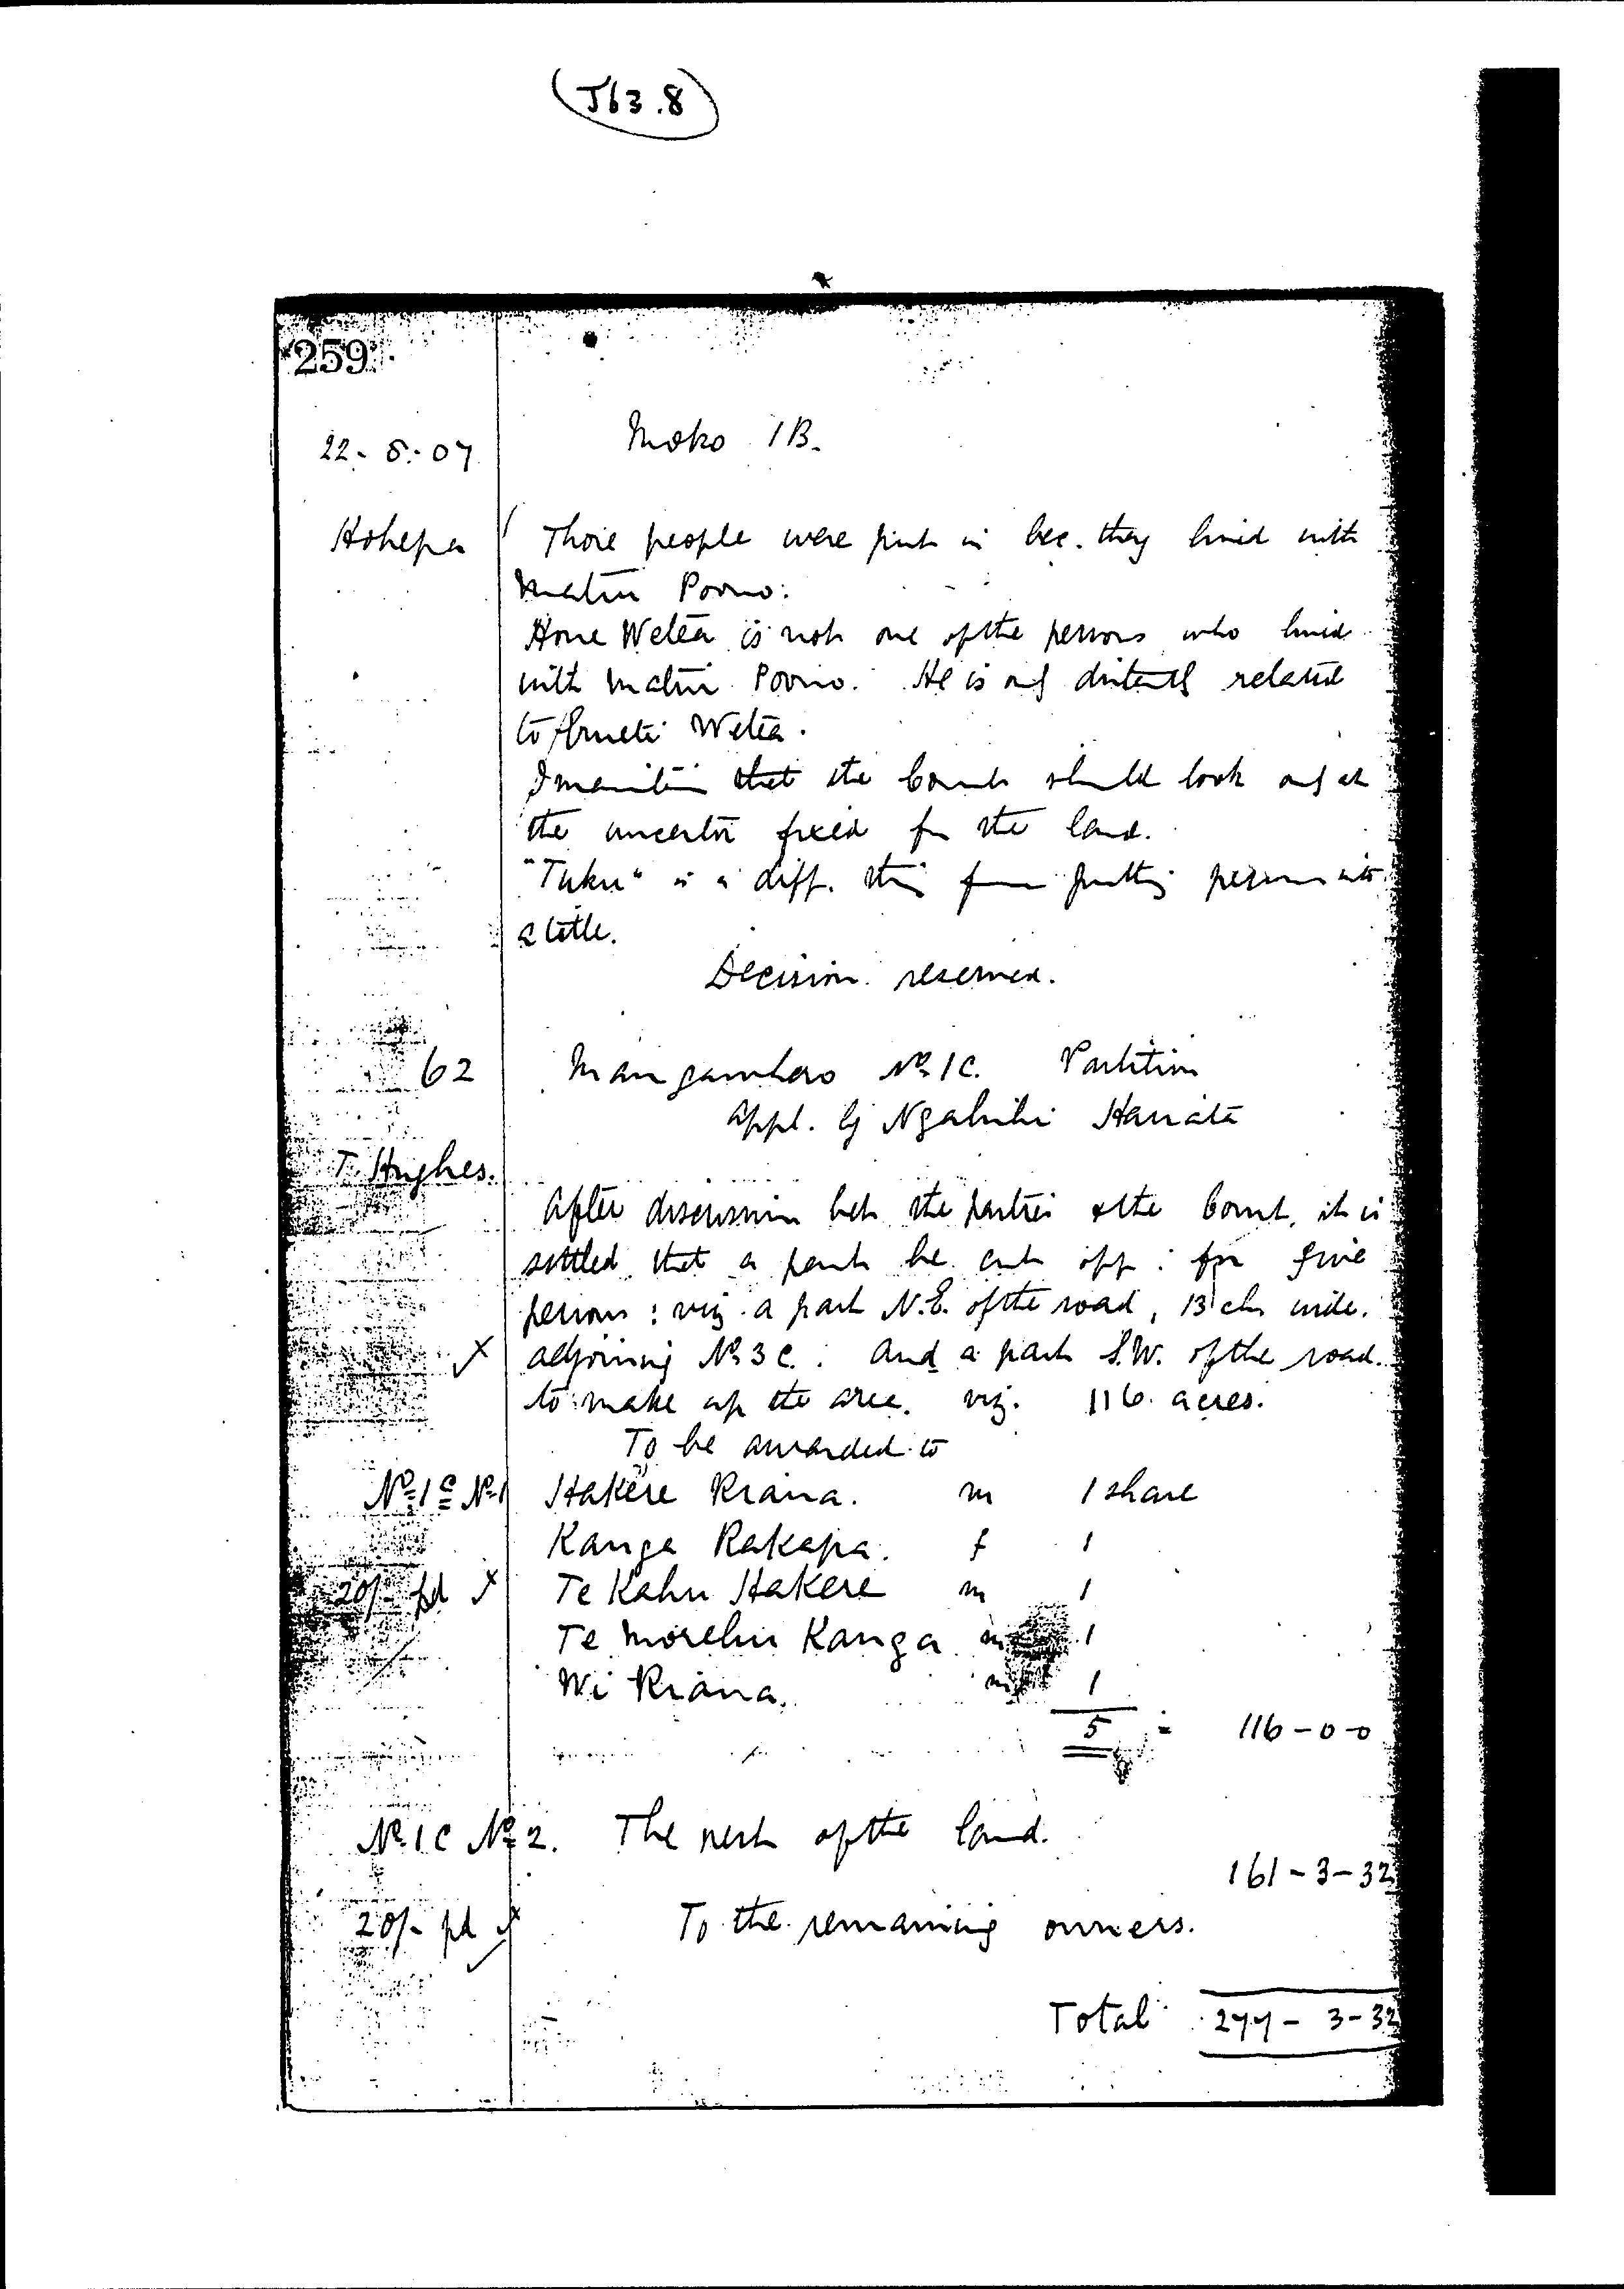 (J63.8)
259
22-5-07
Moko 1B.
Hohepa
Those people were put in bec. they lived with
Matiu Poono.
Hone Wetea is not one of the persons who lived
with Matiu Poono. He is only distantly related
to Wetea.
I maintain that the Court should look only at
the ancestor fixed for the land.
"Tuku" is a diff. thing from putting persons into
a title.
Decision reserved.
62 Mangawhero No 1C. Partition
appl. by Ngahihi Hariata
T. Hughes.
After discussion betn the parties & the Court, it is
settled that a part be cut off: for five
persons: viz. a part N.E. of the road, 13 chs wide.
adjoining No 3C. And a part S.W. of the road.
to make up the area. viz. 116 acres.
To be awarded to
No 1C No 1 Hakere Riana. m 1 share
Kanga Rakapa. f 1
20/- pd Te Kahu Hakere m 1
Te Morehu Kanga m 1
Wi Riana. m 1
5 = 116-0-0
No 1C No 2. The rest of the land.
161-3-32
20/- pd To the remaining owners.
Total 277-3-32